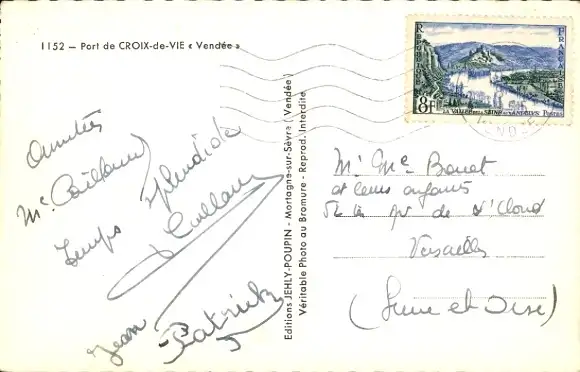 1152 — Port de CROIX-de-VIE « Vendée »
REPUBLIQUE FRANÇAISE
8F
LA VALLÉE DE LA SEINE AUX ANDELYS POSTES
Amitiés
Mc Caillaud
Temps splendide
Caillaud
Jean
Patrick
Editions JEHLY-POUPIN - Mortagne-sur-Sèvre (Vendée)
Véritable Photo au Bromure - Reprod. Interdite
Mr Me Bouet
et leurs enfants
de St Cloud
Versailles
(Seine et Oise)